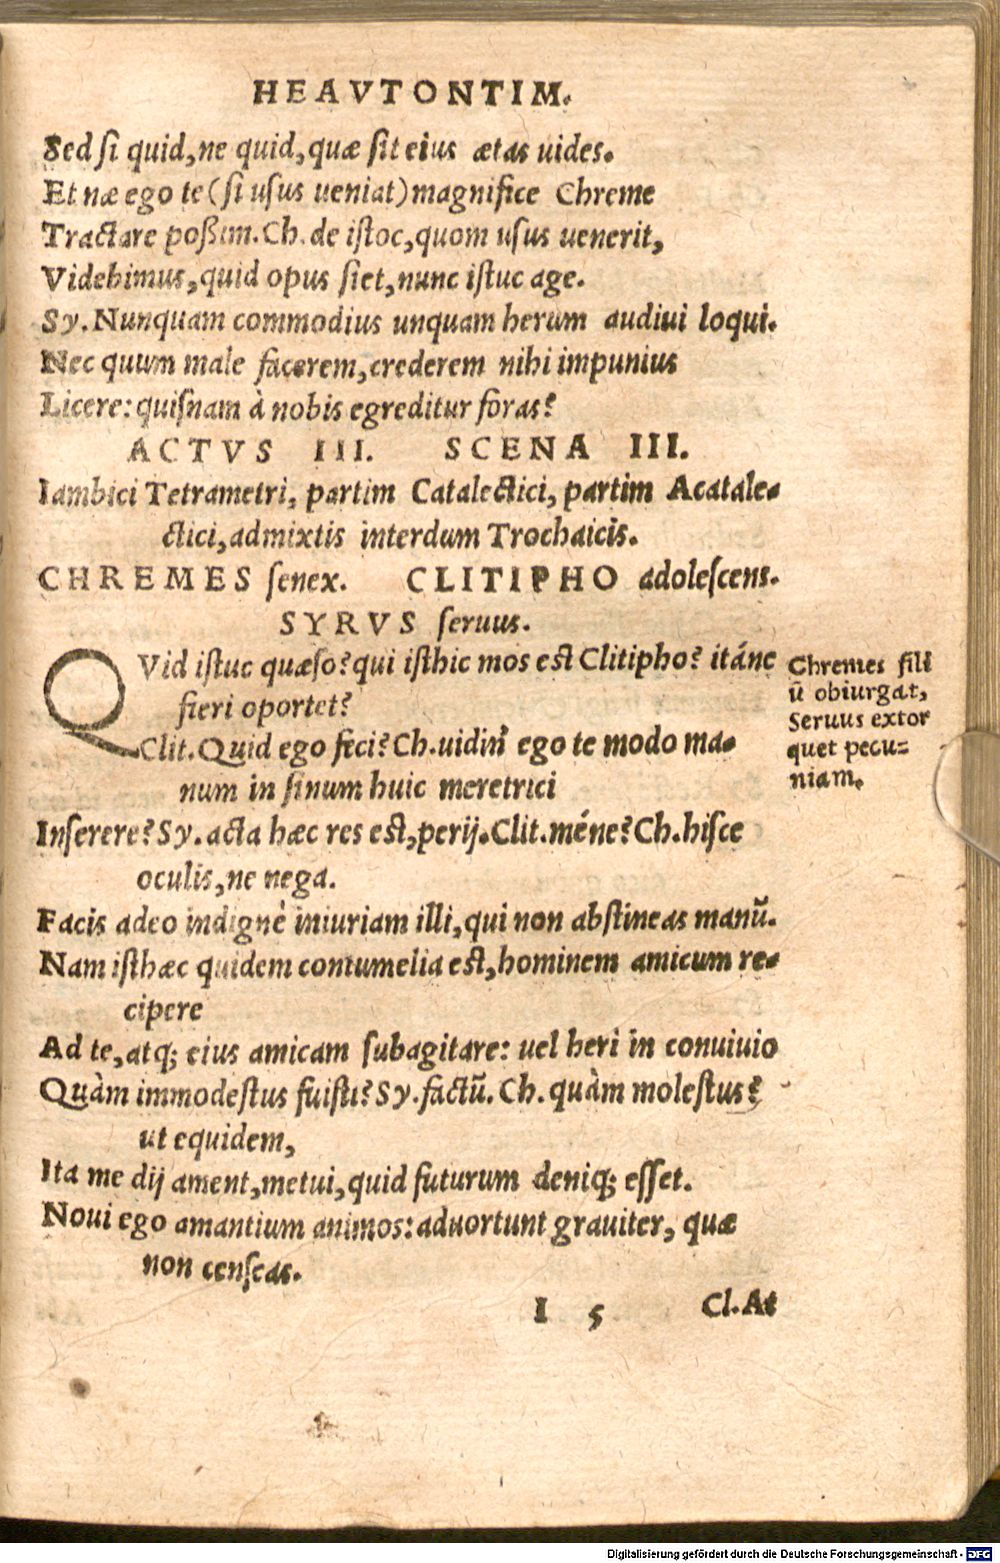 HEAVTONTIM.
Sed si quid, ne quid, quæ sit eius ætas uides.
Et næ ego te (si usus ueniat) magnifice Chreme
Tractare poßim. Ch. de istoc, quom usus uenerit,
Videbimus, quid opus siet, nunc istuc age.
Sy. Nunquam commodius unquam herum audiui loqui.
Nec quum male facerem, crederem nihi impunius
Licere: quisnam à nobis egreditur foras?
ACTVS III. SCENA III.
Iambici Tetrametri, partim Catalectici, partim Acatale-
ctici, admixtis interdum Trochaicis.
CHREMES senex. CLITIPHO adolescens.
SYRVS seruus.
QVid istuc quæso? qui isthic mos est Clitipho? itáne
fieri oportet?
Clit. Quid ego feci? Ch. uidin' ego te modo ma-
num in sinum huic meretrici
Inserere? Sy. acta hæc res est, perij. Clit. méne? Ch. hisce
oculis, ne nega.
Facis adeo indignè iniuriam illi, qui non abstineas manũ.
Nam isthæc quidem contumelia est, hominem amicum re-
cipere
Ad te, atq; eius amicam subagitare: uel heri in conuiuio
Quàm immodestus fuisti? Sy. factũ. Ch. quàm molestus?
ut equidem,
Ita me dij ament, metui, quid futurum deniq; esset.
Noui ego amantium animos: aduortunt grauiter, quæ
non censeas.
I 5 Cl. At
Chremes fili
ũ obiurgat,
Seruus extor
quet pecu=
niam.
Digitalisierung gefördert durch die Deutsche Forschungsgemeinschaft - DFG